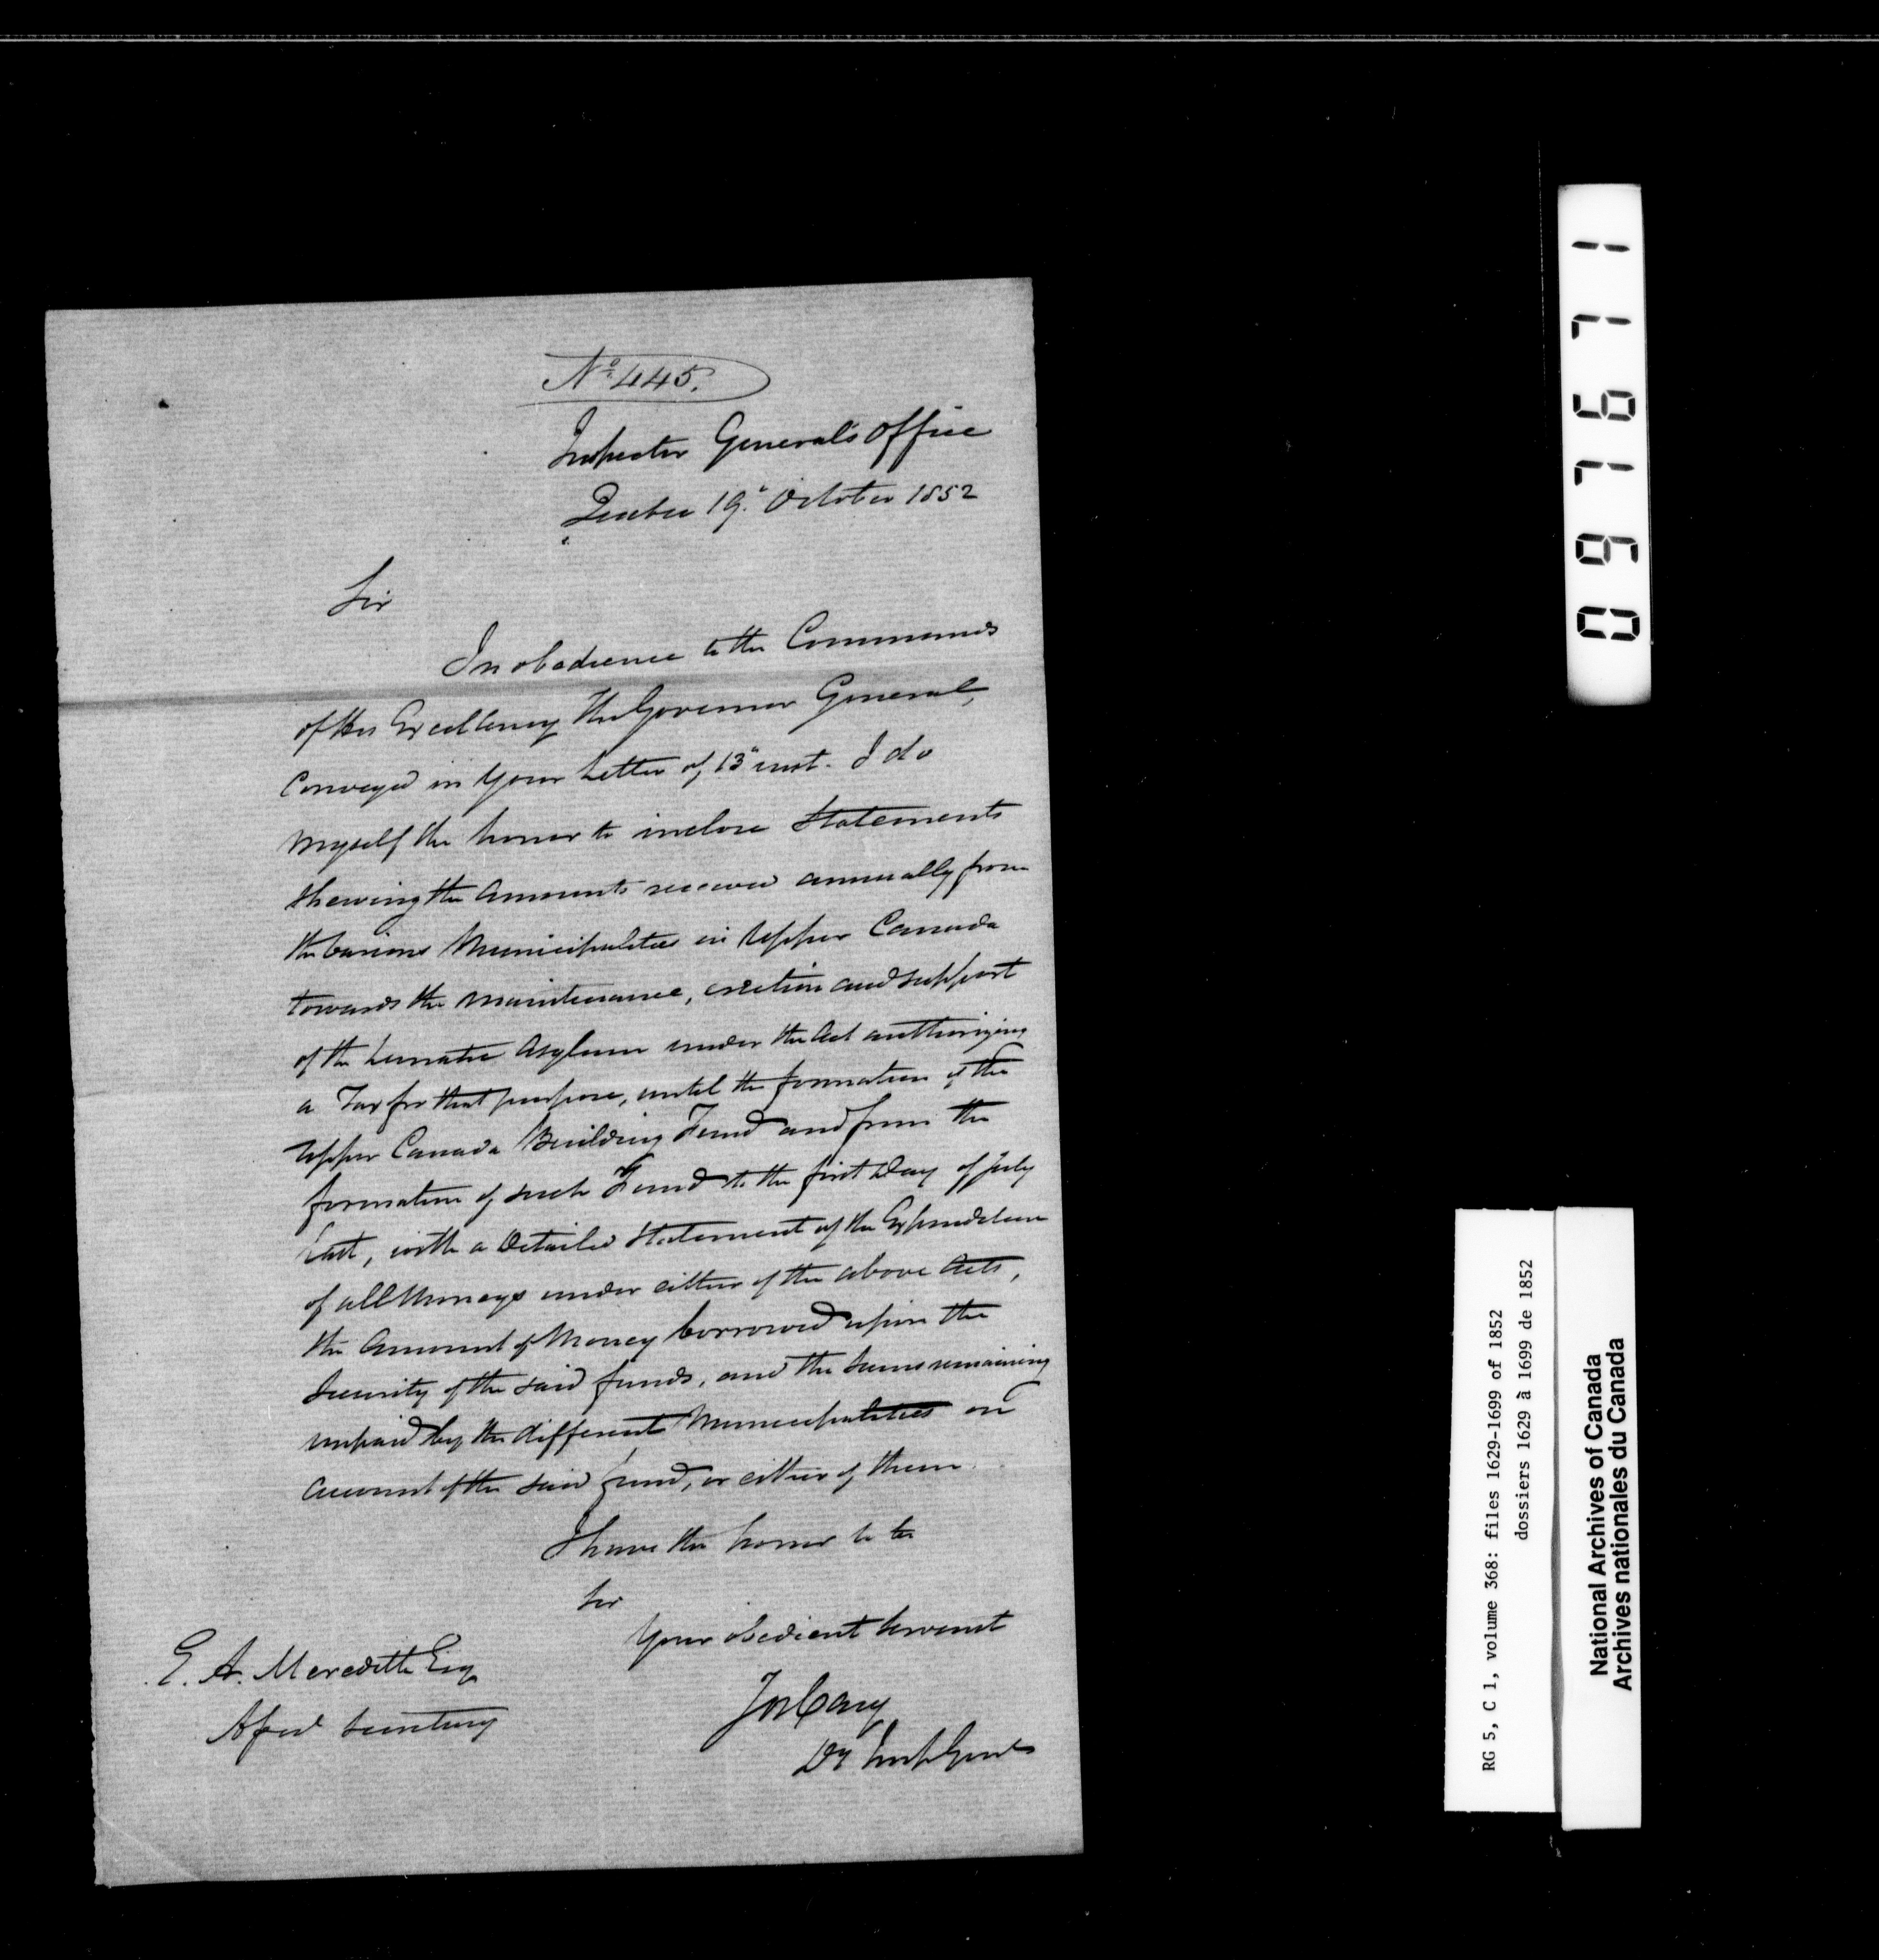 No. 445.
Inspector General's Office
Quebec 19th October 1852
Sir
In obedience to the Commands
of His Excellency the Governor General,
Conveyed in your Letter of 13th inst. I do
myself the honor to inclose Statements
Shewing the Amounts received annually from
the various Municipalities in Upper Canada
towards the maintenance, erection and support
of the Lunatic Asylum under the Act authorizing
a Tax for that purpose, until the formation of the
Upper Canada Building Fund and from the
formation of such Fund to the first Day of July
last, with a Detailed Statement of the Expenditure
of all Moneys under either of the above Acts,
the Amount of Money borrowed upon the
Security of the said funds, and the Sums remaining
unpaid by the different Municipalities on
Account of the said fund, or either of them.
I have the honor to be
Sir
Your obedient Servant
Jos Cary
Dy Insp Genl
E. A. Meredith Esq
Asst Secretary
097671
RG 5, C 1, volume 368: files 1629-1699 of 1852
dossiers 1629 à 1699 de 1852
National Archives of Canada
Archives nationales du Canada